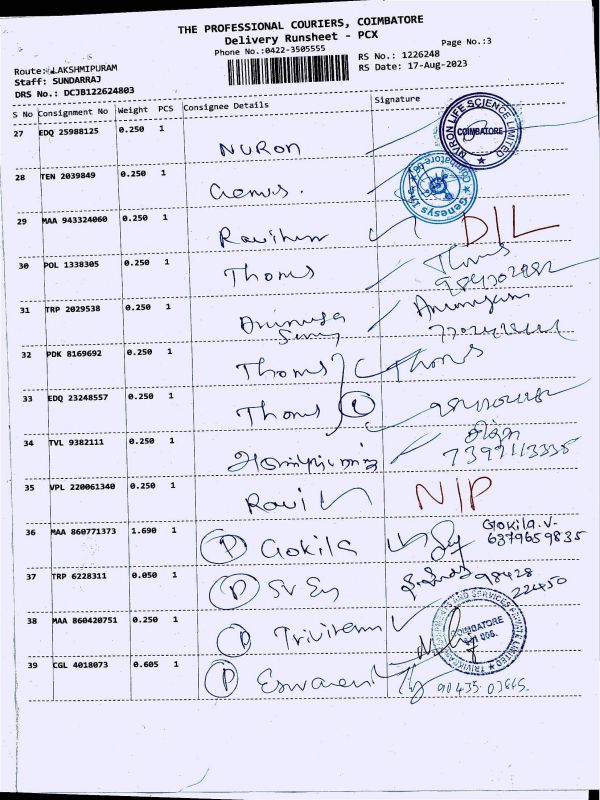 THE PROFESSIONAL COURIERS, COIMBATORE
Delivery Runsheet - PCX
Phone No.:0422-3505555
Page No.:3
Route: LAKSHMIPURAM
Staff: SUNDARRAJ
DRS No.: DCJB122624803
RS No.: 1226248
RS Date: 17-Aug-2023
S No Consignment No Weight PCS Consignee Details Signature
27 EDQ 25988125 0.250 1 NURON NYRON LIFE SCIENCE LIMITED COIMBATORE
28 TEN 2039849 0.250 1 Genus. Genesys Coimbatore
29 MAA 943324060 0.250 1 D/L
30 POL 1338305 0.250 1 Thoms Thoms
31 TRP 2029538 0.250 1
32 PDK 8169692 0.250 1 Thoms Thoms
33 EDQ 23248557 0.250 1 Thoms
34 TVL 9382111 0.250 1
7397113335
35 VPL 220061340 0.250 1 Ravi N/P
36 MAA 860771373 1.690 1 P Gokila Gokila.V.
6379659835
37 TRP 6228311 0.050 1 P 98428
22450
38 MAA 860420751 0.250 1 P COIMBATORE
39 CGL 4018073 0.605 1 P